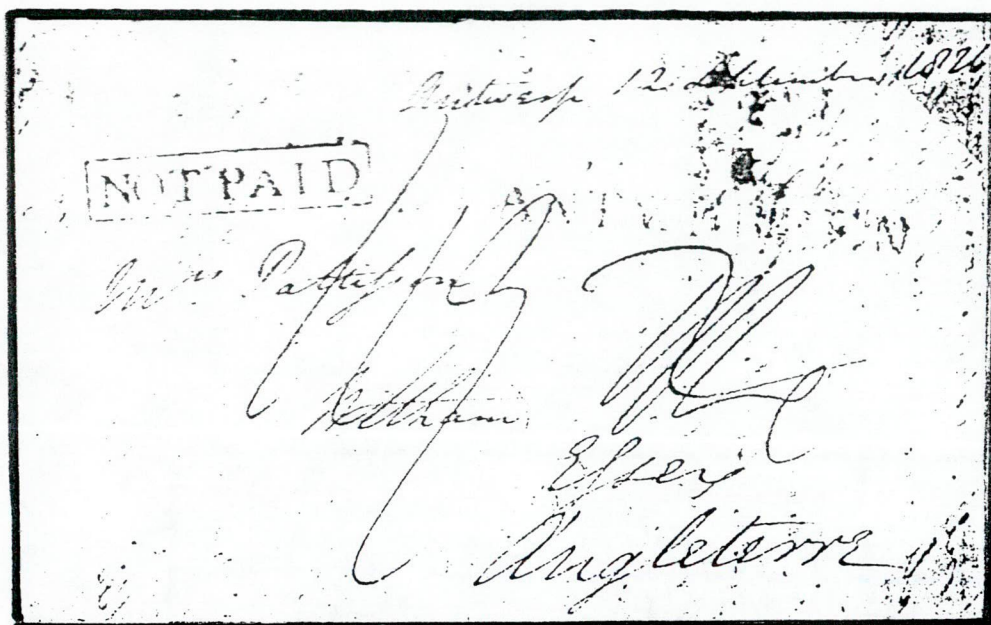 Antwerp 12 September 1826
NOT PAID
ANTWERPEN
Mrs Pattisson
Essex
Angleterre